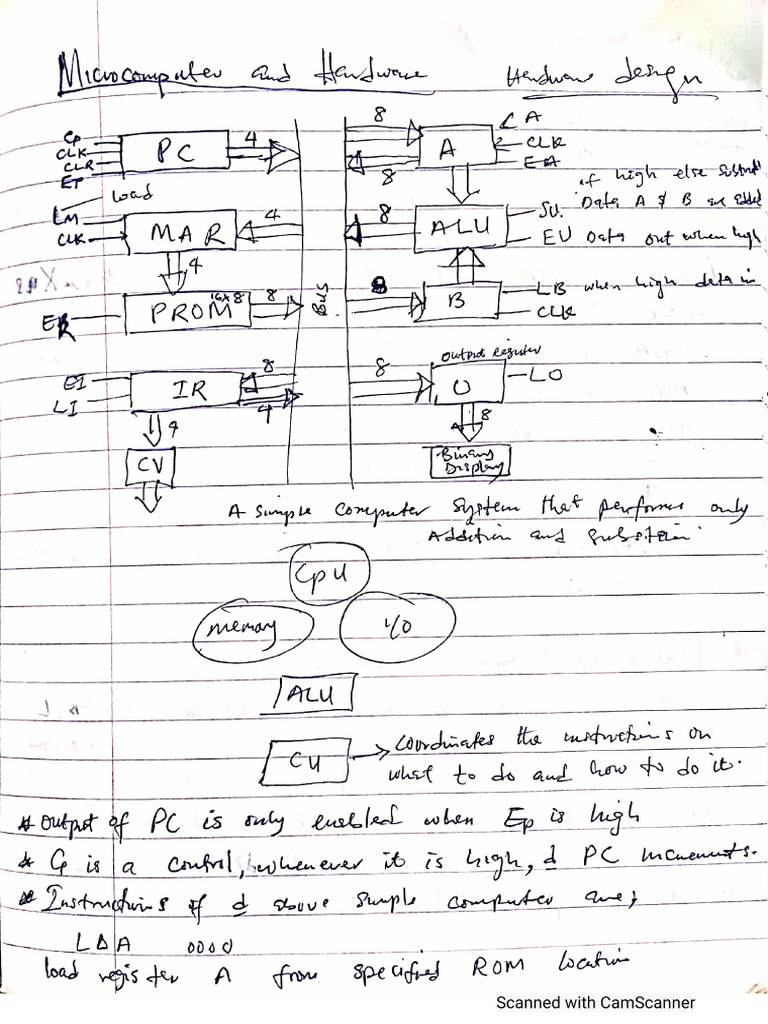 Microcomputer and Hardware
Hardware design
Cp
CLK
CLR
EP
PC
4
8
8
A
LA
CLK
EA
load
LM
CLK
MAR
4
4
8
ALU
SU.
EU
if high else subtract
Data A & B are added
Data out when high
ER
PROM
16x8
8
Bus
8
B
LB when high data in
CLK
EI
LI
IR
8
4
4
CU
8
output register
O
LO
8
Binary
Display
A simple computer system that performs only
Addition and substrain
CPU
memory
I/O
ALU
CU
Coordinates the instructions on
what to do and how to do it.
* output of PC is only enabled when Ep is high
* Cp is a control, whenever it is high, d PC increments.
* Instructions of d above simple computer are;
LDA 0000
load register A from specified ROM location
Scanned with CamScanner